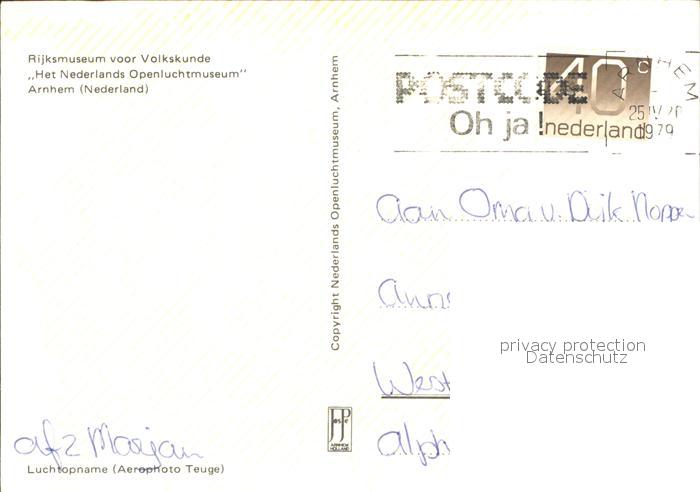 Rijksmuseum voor Volkskunde
„Het Nederlands Openluchtmuseum”
Arnhem (Nederland)
Copyright Nederlands Openluchtmuseum, Arnhem
POSTCODE
Oh ja!
40c
nederland
ARNHEM
25 IV
1979
aan Oma v. Dijk
West
alph
privacy protection
Datenschutz
JosPé
ARNHEM
HOLLAND
afz Marjan
Luchtopname (Aerophoto Teuge)